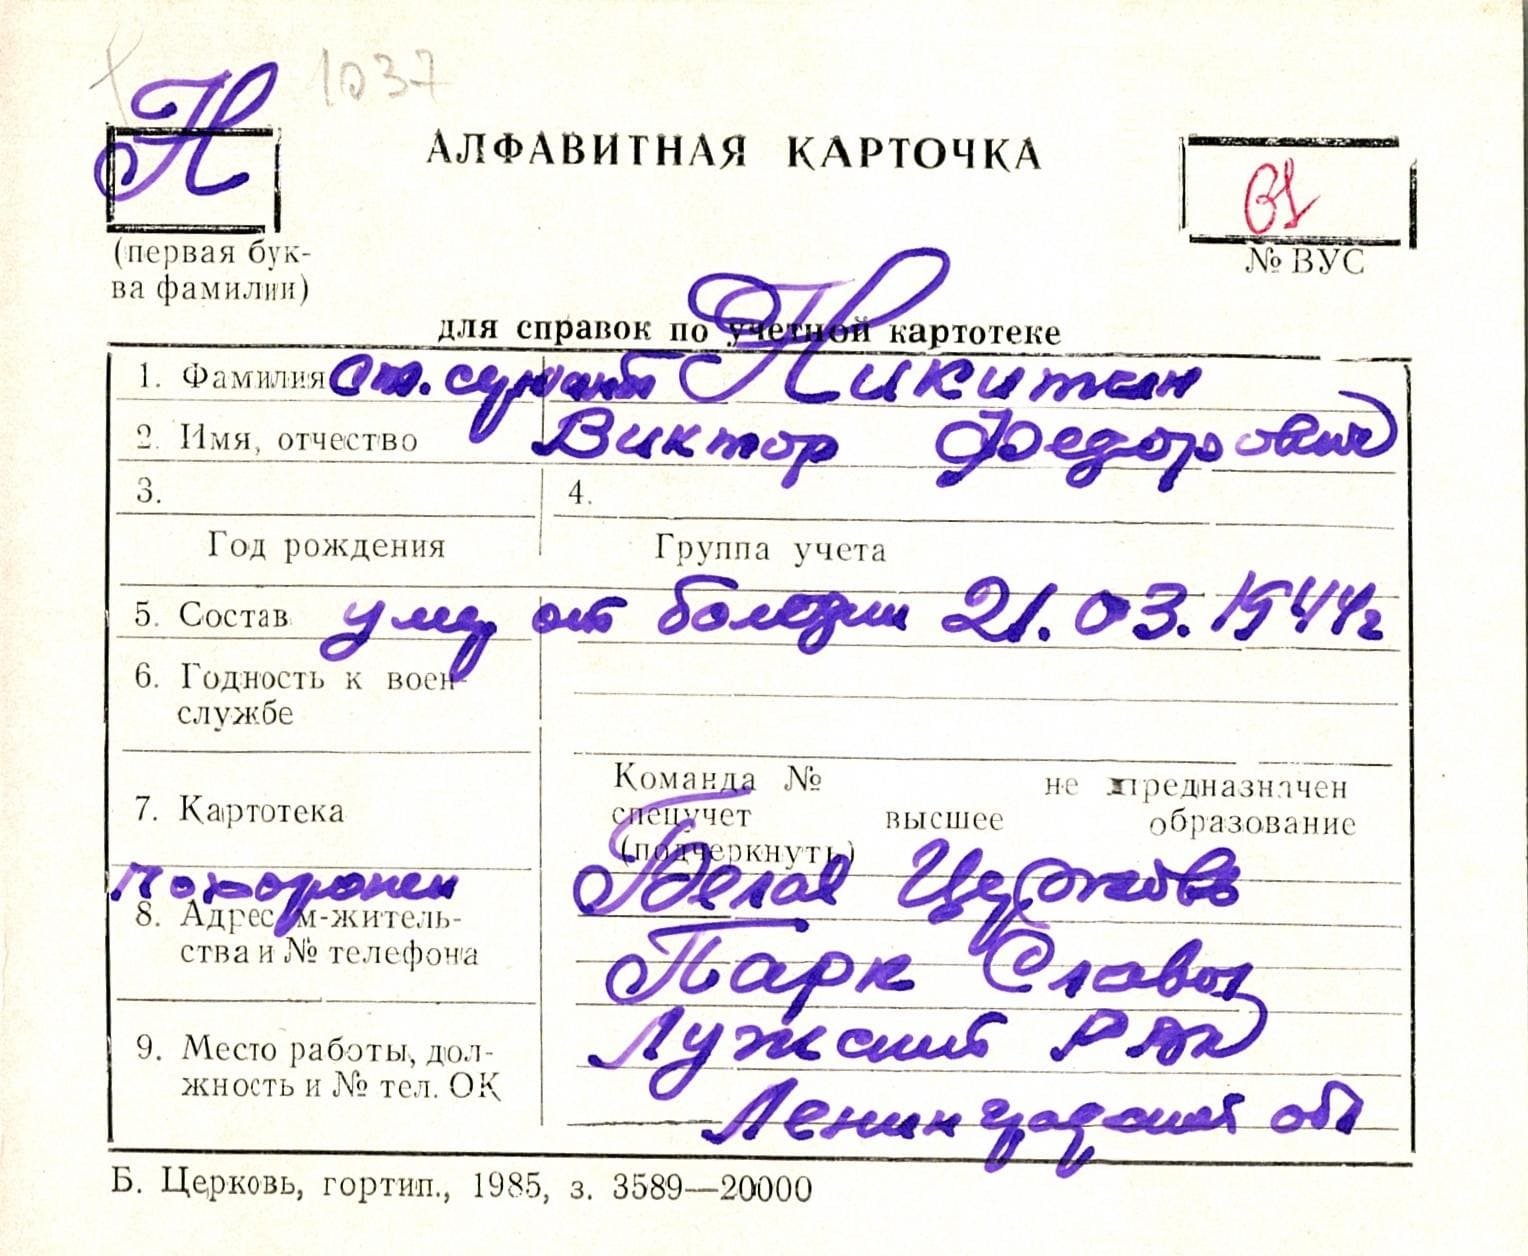 1037
Н
АЛФАВИТНАЯ КАРТОЧКА
(первая бук-
ва фамилии)
№ ВУС
для справок по учетной картотеке
1. Фамилия ст. сержант Никитин
2. Имя, отчество Виктор Федорович
3. 4.
Год рождения Группа учета
5. Состав умер от болезни 21.03.1944г
6. Годность к воен-
службе
Команда № не предназначен
7. Картотека спецучет высшее образование
(подчеркнуть)
Похоронен Белая Церковь
8. Адрес м-житель-
ства и № телефона
Парк Славы
9. Место работы, дол-
жность и № тел. ОК
Лужский РВК
Ленинградской обл
Б. Церковь, гортип., 1985, з. 3589—20000